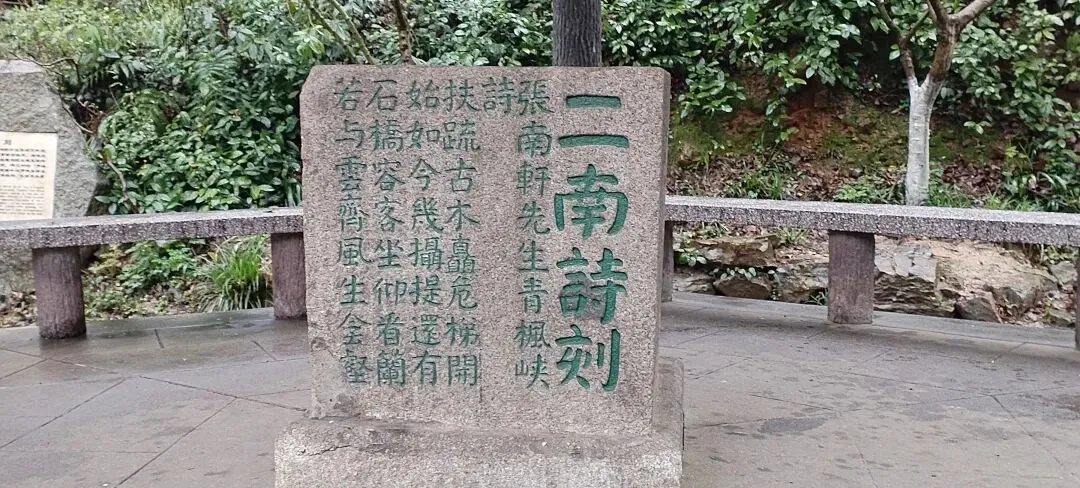 二南詩刻
張南軒先生青楓峽
詩
扶疏古木矗危梯開
始如今幾攝提還有
石橋容客坐仰看蘭
若与雲齊風生壑